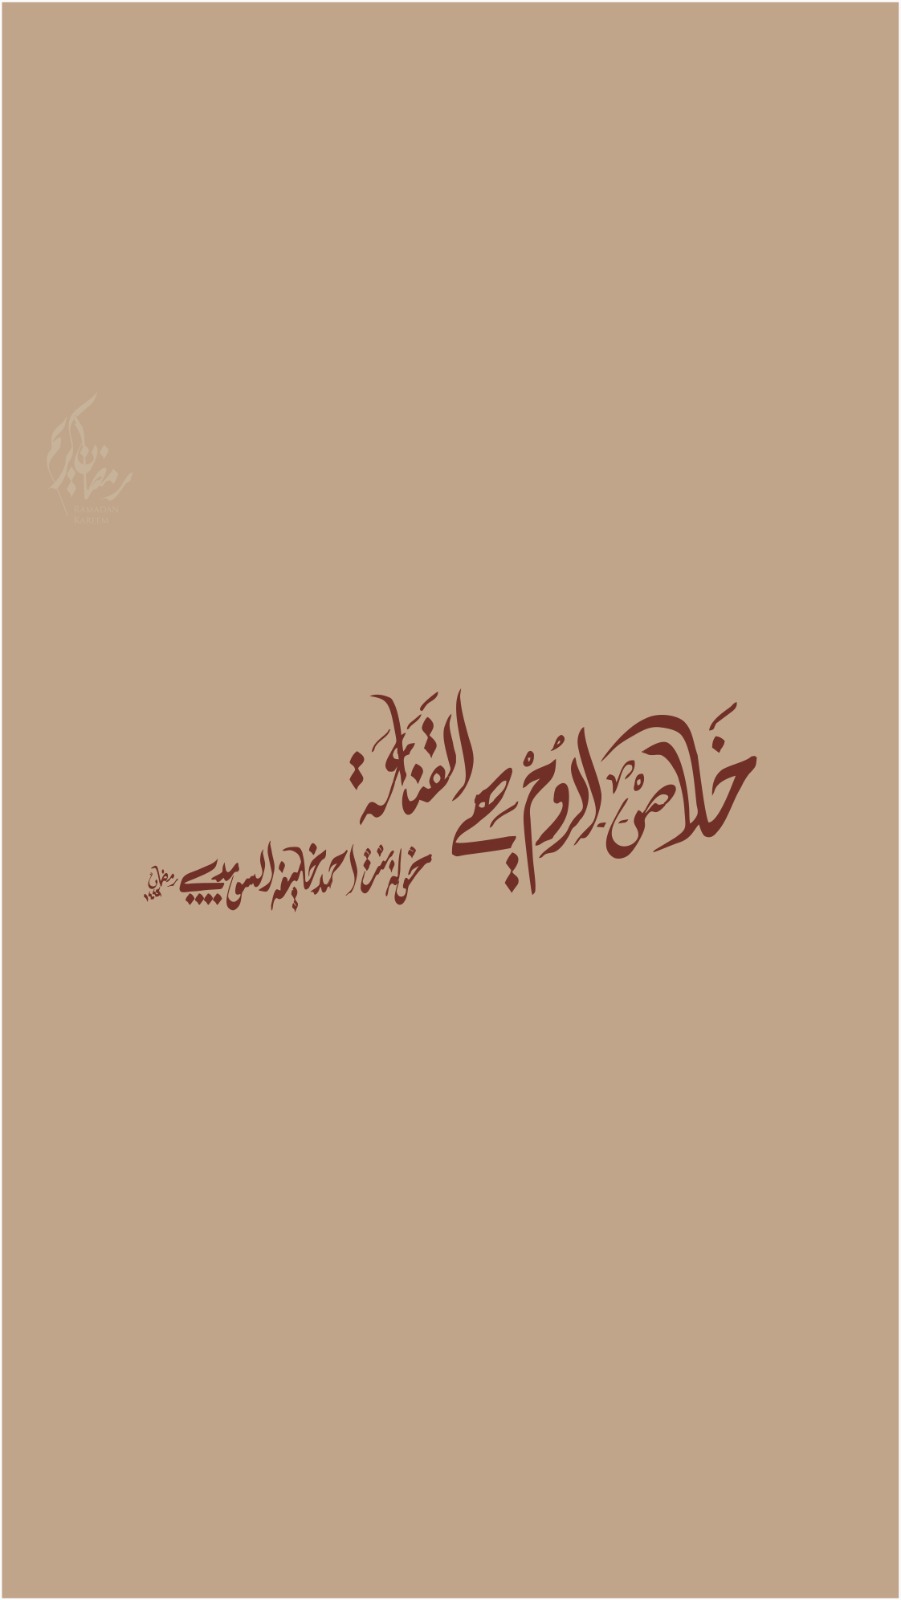 رمضان كريم
RAMADAN
KAREEM
خَلَاصُ الرُوحْ هِي القَنَاعَة
خولة بنت احمد خليفة السويدي رمضان